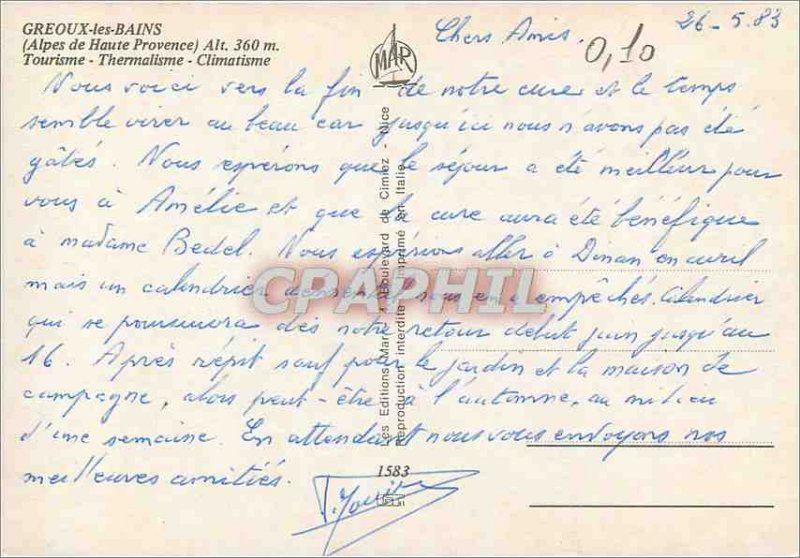 GREOUX-les-BAINS
(Alpes de Haute Provence) Alt. 360 m.
Tourisme - Thermalisme - Climatisme
MAR
0,10
26-5.83
Chers Amis.
Nous voici vers la fin de notre cure et le temps
semble virer au beau car jusqu'ici nous n'avons pas été
gâtés. Nous espérons que le séjour a été meilleur pour
vous à Amélie et que la cure aura été bénéfique
à madame Bedel. Nous espérions aller à Dinan en avril
mais un calendrier nous en a empêchés. Calendrier
qui se poursuivra dès notre retour début juin jusqu'au
16. Après répit sauf pour le jardin et la maison de
campagne, alors peut-être à l'automne, au milieu
d'une semaine. En attendant nous vous envoyons nos
meilleures amitiés.
Les Editions Mar Boulevard de Cimiez - Nice
Reproduction interdite Imprimé en Italie
1583
CPAPHIL